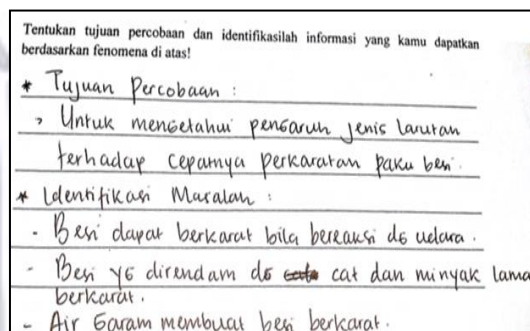 Tentukan tujuan percobaan dan identifikasilah informasi yang kamu dapatkan
berdasarkan fenomena di atas!
* Tujuan Percobaan :
, Untuk mengetahui pengaruh jenis larutan
terhadap cepatnya perkaratan paku besi.
* Identifikasi Masalah :
- Besi dapat berkarat bila bereaksi dg udara.
- Besi yg direndam dg cat dan minyak lama
berkarat.
- Air Garam membuat besi berkarat.